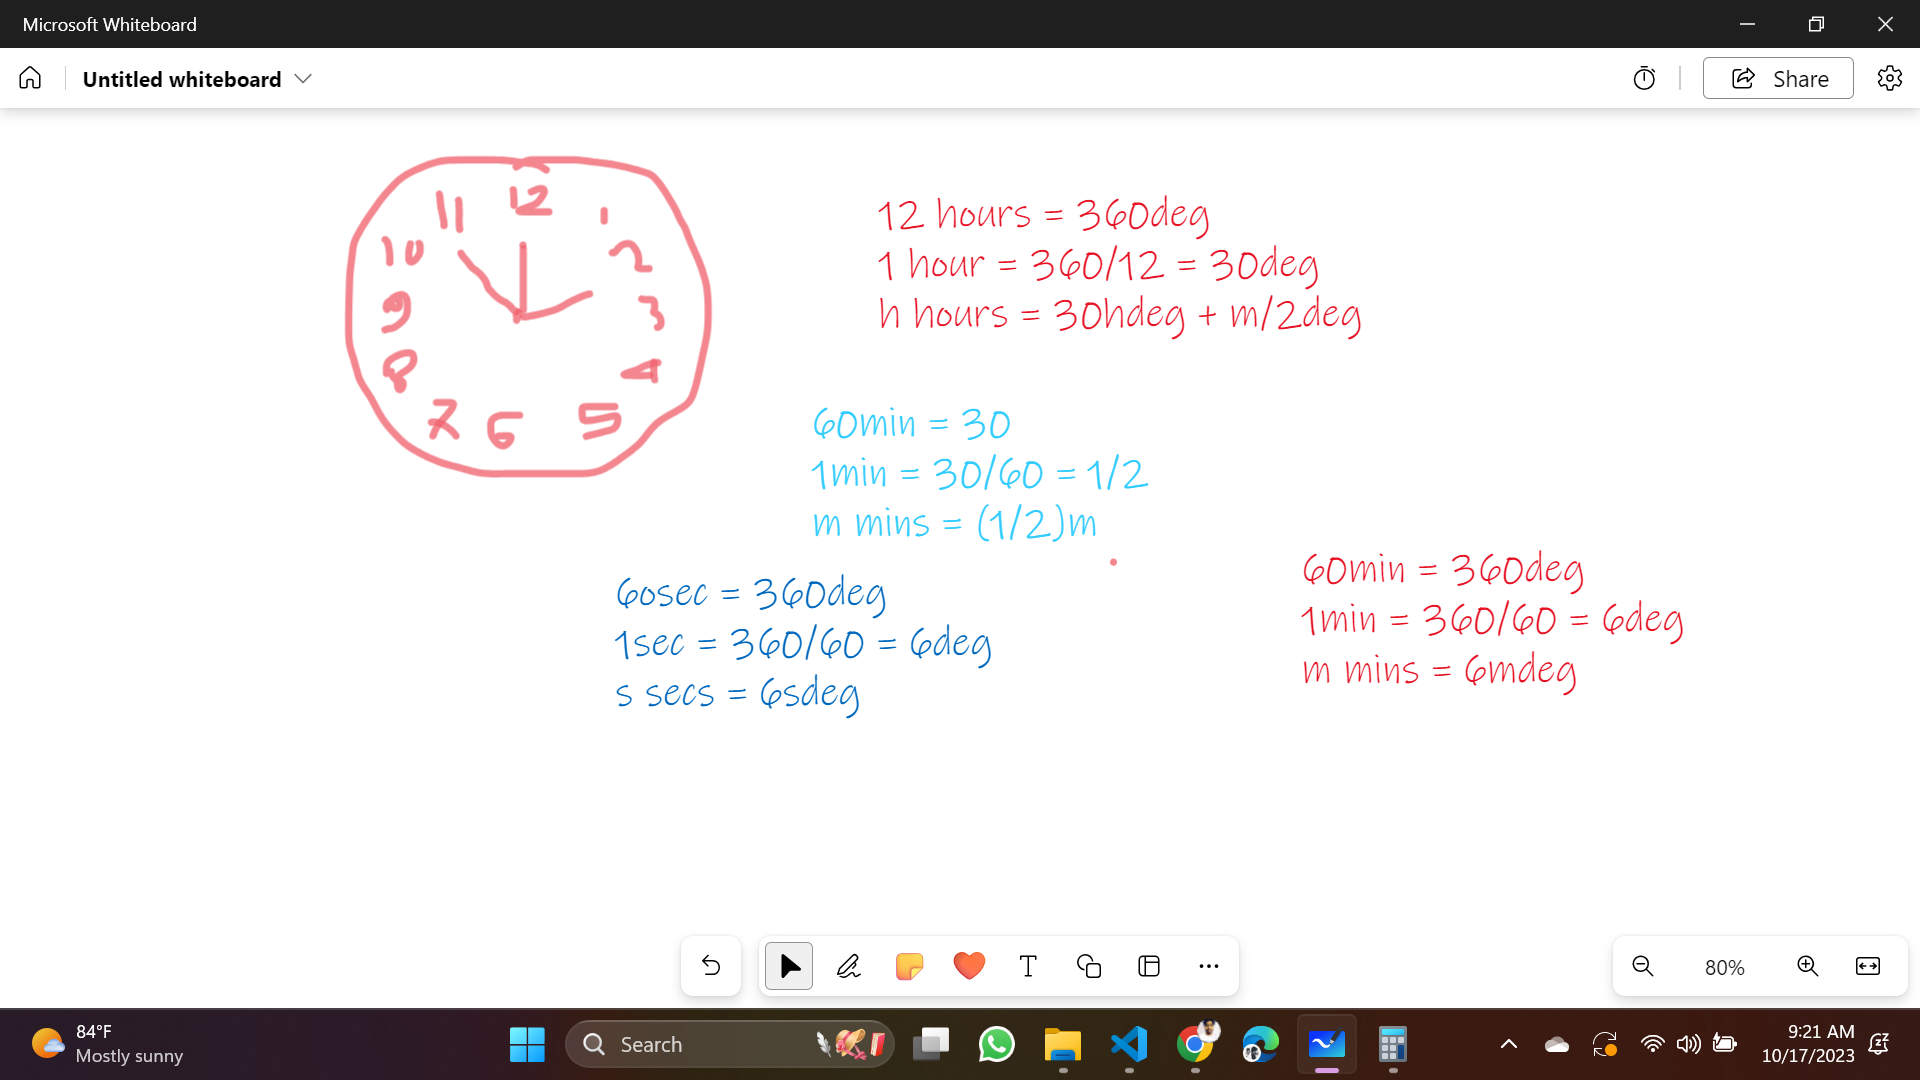 Microsoft Whiteboard
Untitled whiteboard
Share
12
11
1
10
2
9
3
8
4
7
6
5
12 hours = 360deg
1 hour = 360/12 = 30deg
h hours = 30hdeg + m/2deg
60min = 30
1min = 30/60 = 1/2
m mins = (1/2)m
60sec = 360deg
1sec = 360/60 = 6deg
s secs = 6sdeg
60min = 360deg
1min = 360/60 = 6deg
m mins = 6mdeg
T
80%
84°F
Mostly sunny
Search
9:21 AM
10/17/2023